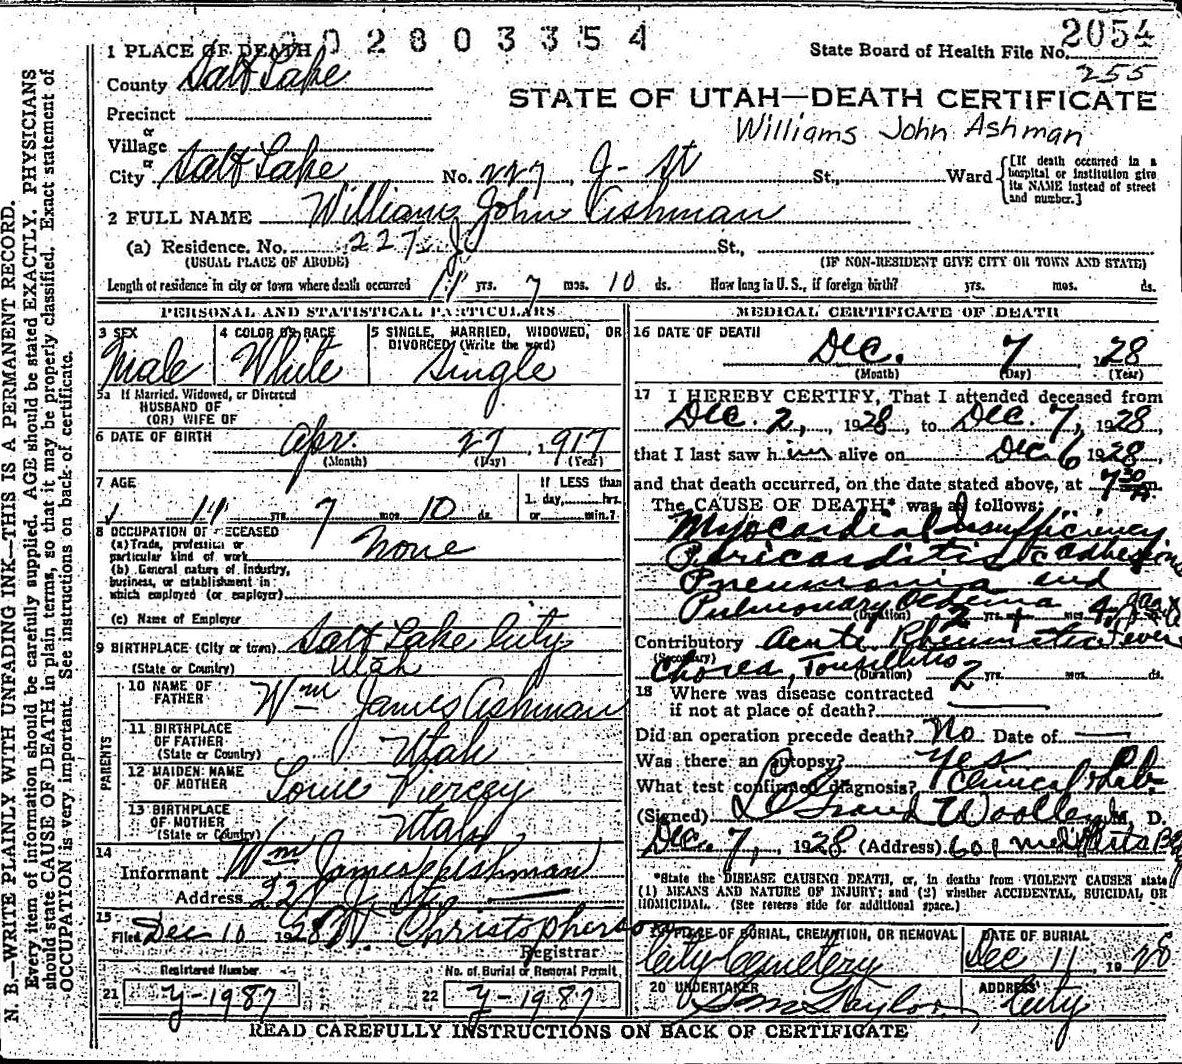 2803354
2054
1 PLACE OF DEATH
State Board of Health File No.
255
County Salt Lake
STATE OF UTAH—DEATH CERTIFICATE
Precinct
Williams John Ashman
or
Village
or
City Salt Lake No. 227, J- St St., Ward {[If death occurred in a hospital or institution give its NAME instead of street and number.]
2 FULL NAME Williams John Ashman
(a) Residence. No. 227 J St.,
(USUAL PLACE OF ABODE) (IF NON-RESIDENT GIVE CITY OR TOWN AND STATE)
Length of residence in city or town where death occurred 11 yrs. 7 mos. 10 ds. How long in U. S., if foreign birth? yrs. mos. ds.
PERSONAL AND STATISTICAL PARTICULARS
3 SEX
Male
4 COLOR OR RACE
White
5 SINGLE, MARRIED, WIDOWED, OR DIVORCED (Write the word)
Single
5a If Married, Widowed, or Divorced
HUSBAND OF
(OR) WIFE OF
6 DATE OF BIRTH Apr. 27, 1917
(Month) (Day) (Year)
7 AGE
11 yrs. 7 mos. 10 ds.
If LESS than
1 day, hrs.
or min.?
8 OCCUPATION OF DECEASED
(a) Trade, profession or
particular kind of work None
(b) General nature of industry,
business, or establishment in
which employed (or employer)
(c) Name of Employer
9 BIRTHPLACE (City or town) Salt Lake City
(State or Country) Utah
PARENTS
10 NAME OF
FATHER Wm James Ashman
11 BIRTHPLACE
OF FATHER
(State or Country) Utah
12 MAIDEN NAME
OF MOTHER Louie Piercey
13 BIRTHPLACE
OF MOTHER
(State or Country) Utah
14
Informant Wm James Ashman
Address 227 J St.
15
Filed Dec 10 1928 Christopherson
Registrar
Registered Number No. of Burial or Removal Permit.
21 Y-1987 22 Y-1987
MEDICAL CERTIFICATE OF DEATH
16 DATE OF DEATH
Dec. 7 1928
(Month) (Day) (Year)
17 I HEREBY CERTIFY, That I attended deceased from
Dec. 2, 1928, to Dec. 7, 1928,
that I last saw him alive on Dec 6 1928,
and that death occurred, on the date stated above, at 7 30
The CAUSE OF DEATH* was as follows:
Myocardial Insufficiency
Pericarditis c adhesions
Pneumonia and
Pulmonary Oedema
(Duration) 2 yrs. mos. 4 days
Contributory Acute Rheumatic Fever
(Secondary)
Chorea, Tonsillitis (Duration) 2 yrs. mos. ds.
18 Where was disease contracted
if not at place of death?
Did an operation precede death? No Date of
Was there an autopsy? Yes
What test confirmed diagnosis? Clinical & Lab.
(Signed) LeGrand Woolley M. D.
Dec. 7, 1928 (Address) 601 Med Arts Bldg
*State the DISEASE CAUSING DEATH, or, in deaths from VIOLENT CAUSES state
(1) MEANS AND NATURE OF INJURY; and (2) whether ACCIDENTAL, SUICIDAL OR
HOMICIDAL. (See reverse side for additional space.)
19 PLACE OF BURIAL, CREMATION, OR REMOVAL
City Cemetery
DATE OF BURIAL
Dec 11, 1928
20 UNDERTAKER
S M Taylor
ADDRESS
City
READ CAREFULLY INSTRUCTIONS ON BACK OF CERTIFICATE
N. B.—WRITE PLAINLY WITH UNFADING INK—THIS IS A PERMANENT RECORD.
Every item of information should be carefully supplied. AGE should be stated EXACTLY. PHYSICIANS
should state CAUSE OF DEATH in plain terms, so that it may be properly classified. Exact statement of
OCCUPATION is very important. See instructions on back of certificate.